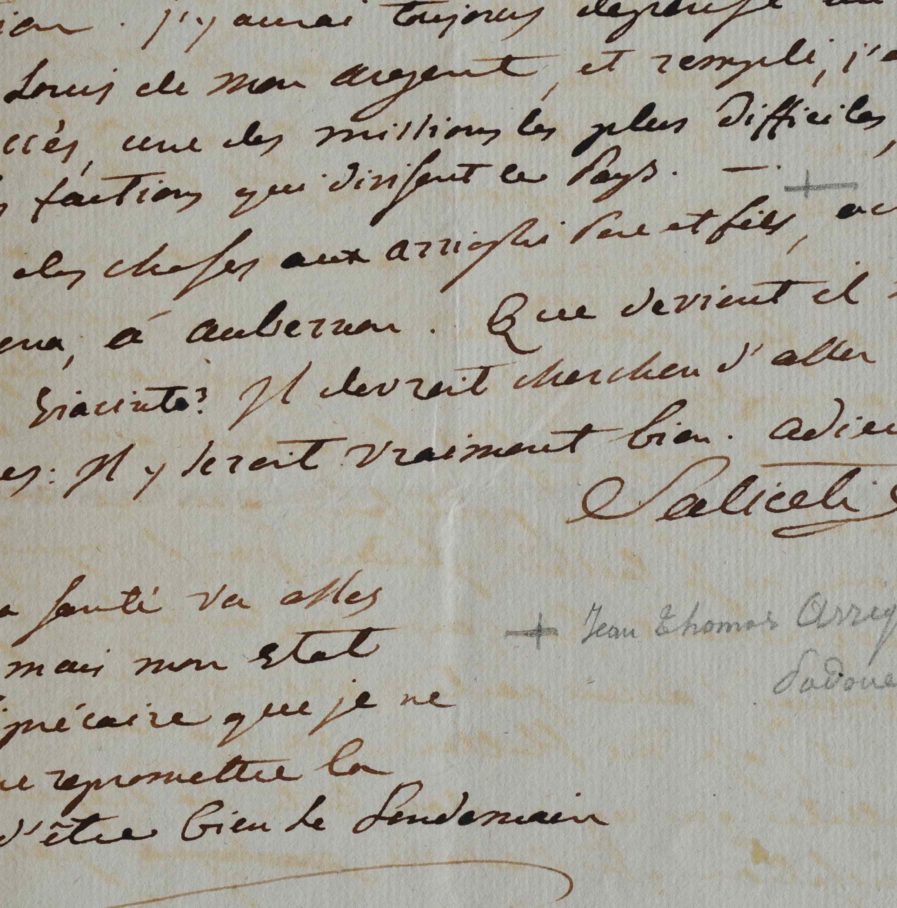 j'y aurai toujours
Louis de mon argent, et rempli, j'a
ccès, une des missions les plus difficiles,
factions qui divisent ce Pays. — . +
des choses aux arrighi Pere et fils,
à aubernon. Que devient il
hiacinte? Il devroit chercher d'aller
es: Il y seroit vraiment bien. adieu
Saliceti
santé va assez
mais mon Etat
précaire que je ne
repromettre la
d'être bien le Lendemain
+ Jean Thomas Arrig
Padoue